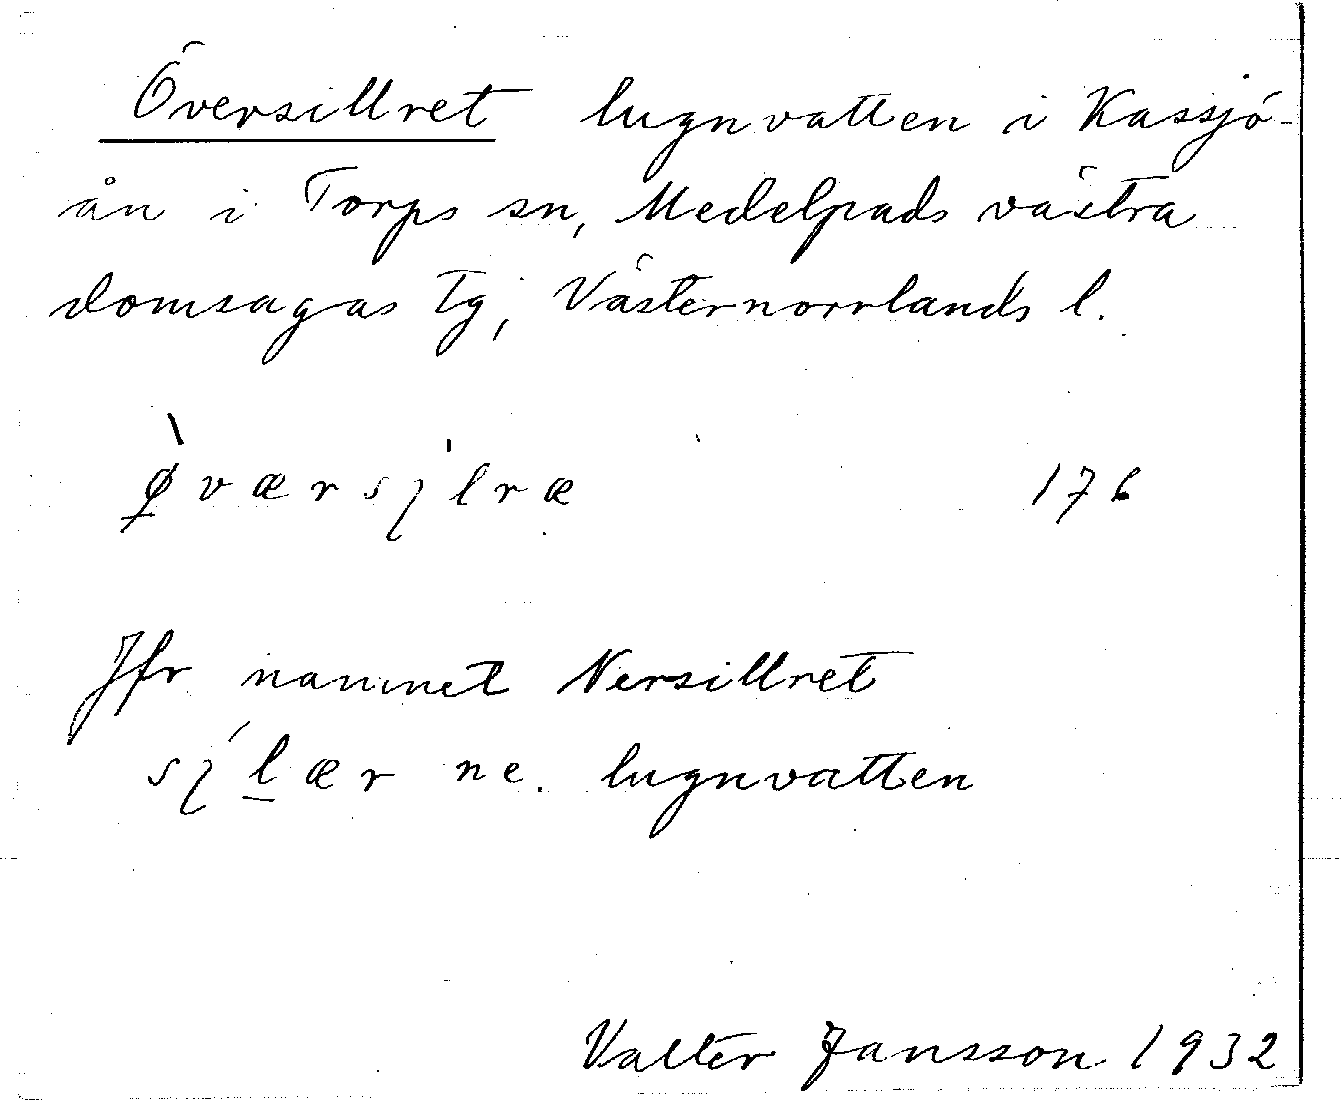 Översillret lugnvatten i Kassjö-
ån i Torps sn, Medelpads västra
domsagas tg, Västernorrlands l.
ø̱̀værsı̨lræ 176
Jfr namnet Nersillret
sı̨́ḻær ne. lugnvatten
Valter Jansson 1932